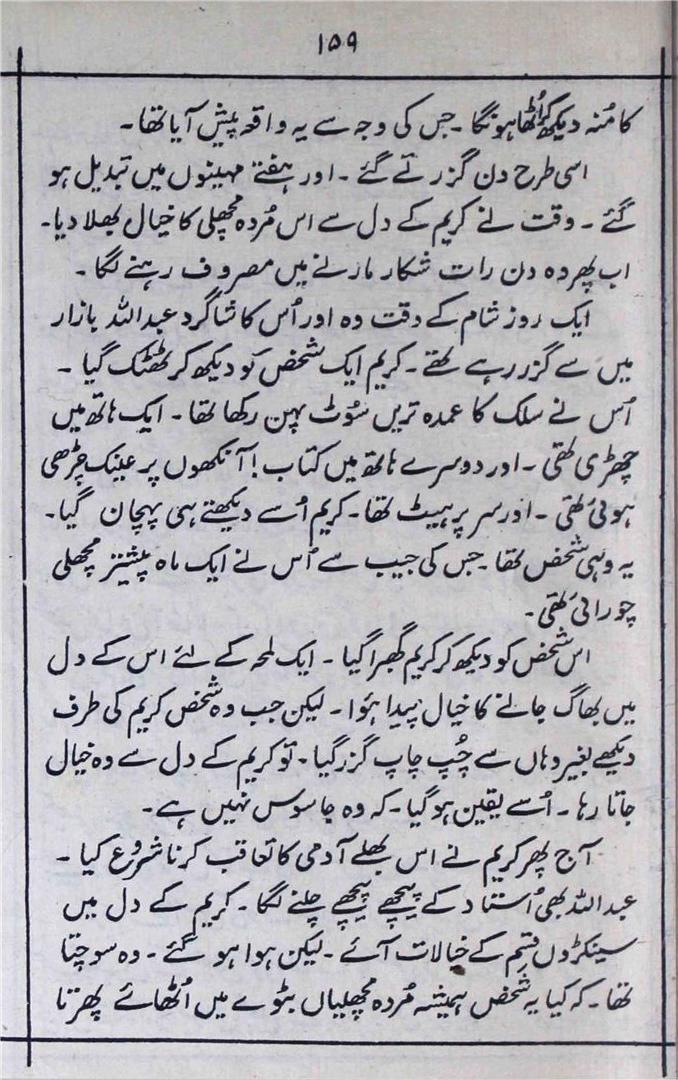 ۱۵۹
کا مُنہ دیکھ کر اُٹھا ہونگا ۔ جس کی وجہ سے یہ واقعہ پیش آیا تھا ۔
اسی طرح دن گزرتے گئے ۔ اور ہفتے مہینوں میں تبدیل ہو
گئے ۔ وقت نے کریم کے دل سے اس مُردہ مچھلی کا خیال بھلا دیا ۔
اب پھر وہ دن رات شکار مارنے میں مصروف رہنے لگا ۔
ایک روز شام کے وقت وہ اور اُس کا شاگرد عبداللہ بازار
میں سے گزر رہے تھے ۔ کریم ایک شخص کو دیکھ کر ٹھٹک گیا ۔
اُس نے سلک کا عمدہ تریں سُوٹ پہن رکھا تھا ۔ ایک ہاتھ میں
چھڑی تھی ۔ اور دوسرے ہاتھ میں کتاب ! آنکھوں پر عینک چڑھی
ہوئی تھی ۔ اور سر پر ہیٹ تھا ۔ کریم اُسے دیکھتے ہی پہچان گیا ۔
یہ وہی شخص تھا ۔ جس کی جیب سے اُس نے ایک ماہ پیشتر مچھلی
چورائی تھی ۔
اس شخص کو دیکھ کر کریم گھبرا گیا ۔ ایک لمحہ کے لئے اس کے دل
میں بھاگ جانے کا خیال پیدا ہؤا ۔ لیکن جب وہ شخص کریم کی طرف
دیکھے بغیر وہاں سے چُپ چاپ گزر گیا ۔ تو کریم کے دل سے وہ خیال
جاتا رہا ۔ اُسے یقین ہو گیا ۔ کہ وہ جاسوس نہیں ہے ۔
آج پھر کریم نے اس بھلے آدمی کا تعاقب کرنا شروع کیا ۔
عبداللہ بھی اُستاد کے پیچھے پیچھے چلنے لگا ۔ کریم کے دل میں
سینکڑوں قسم کے خیالات آئے ۔ لیکن ہوا ہو گئے ۔ وہ سوچتا
تھا ۔ کہ کیا یہ شخص ہمیشہ مُردہ مچھلیاں بٹوے میں اُٹھائے پھرتا